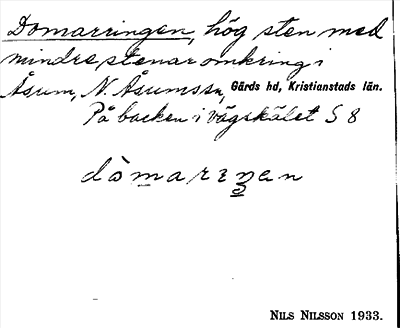 Domarringen, hög sten med
mindre stenar omkring i
Åsum, N. Åsums sn, Gärds hd, Kristianstads län.
På backen i vägskälet S 8
dòmarıŋen
NILS NILSSON 1933.